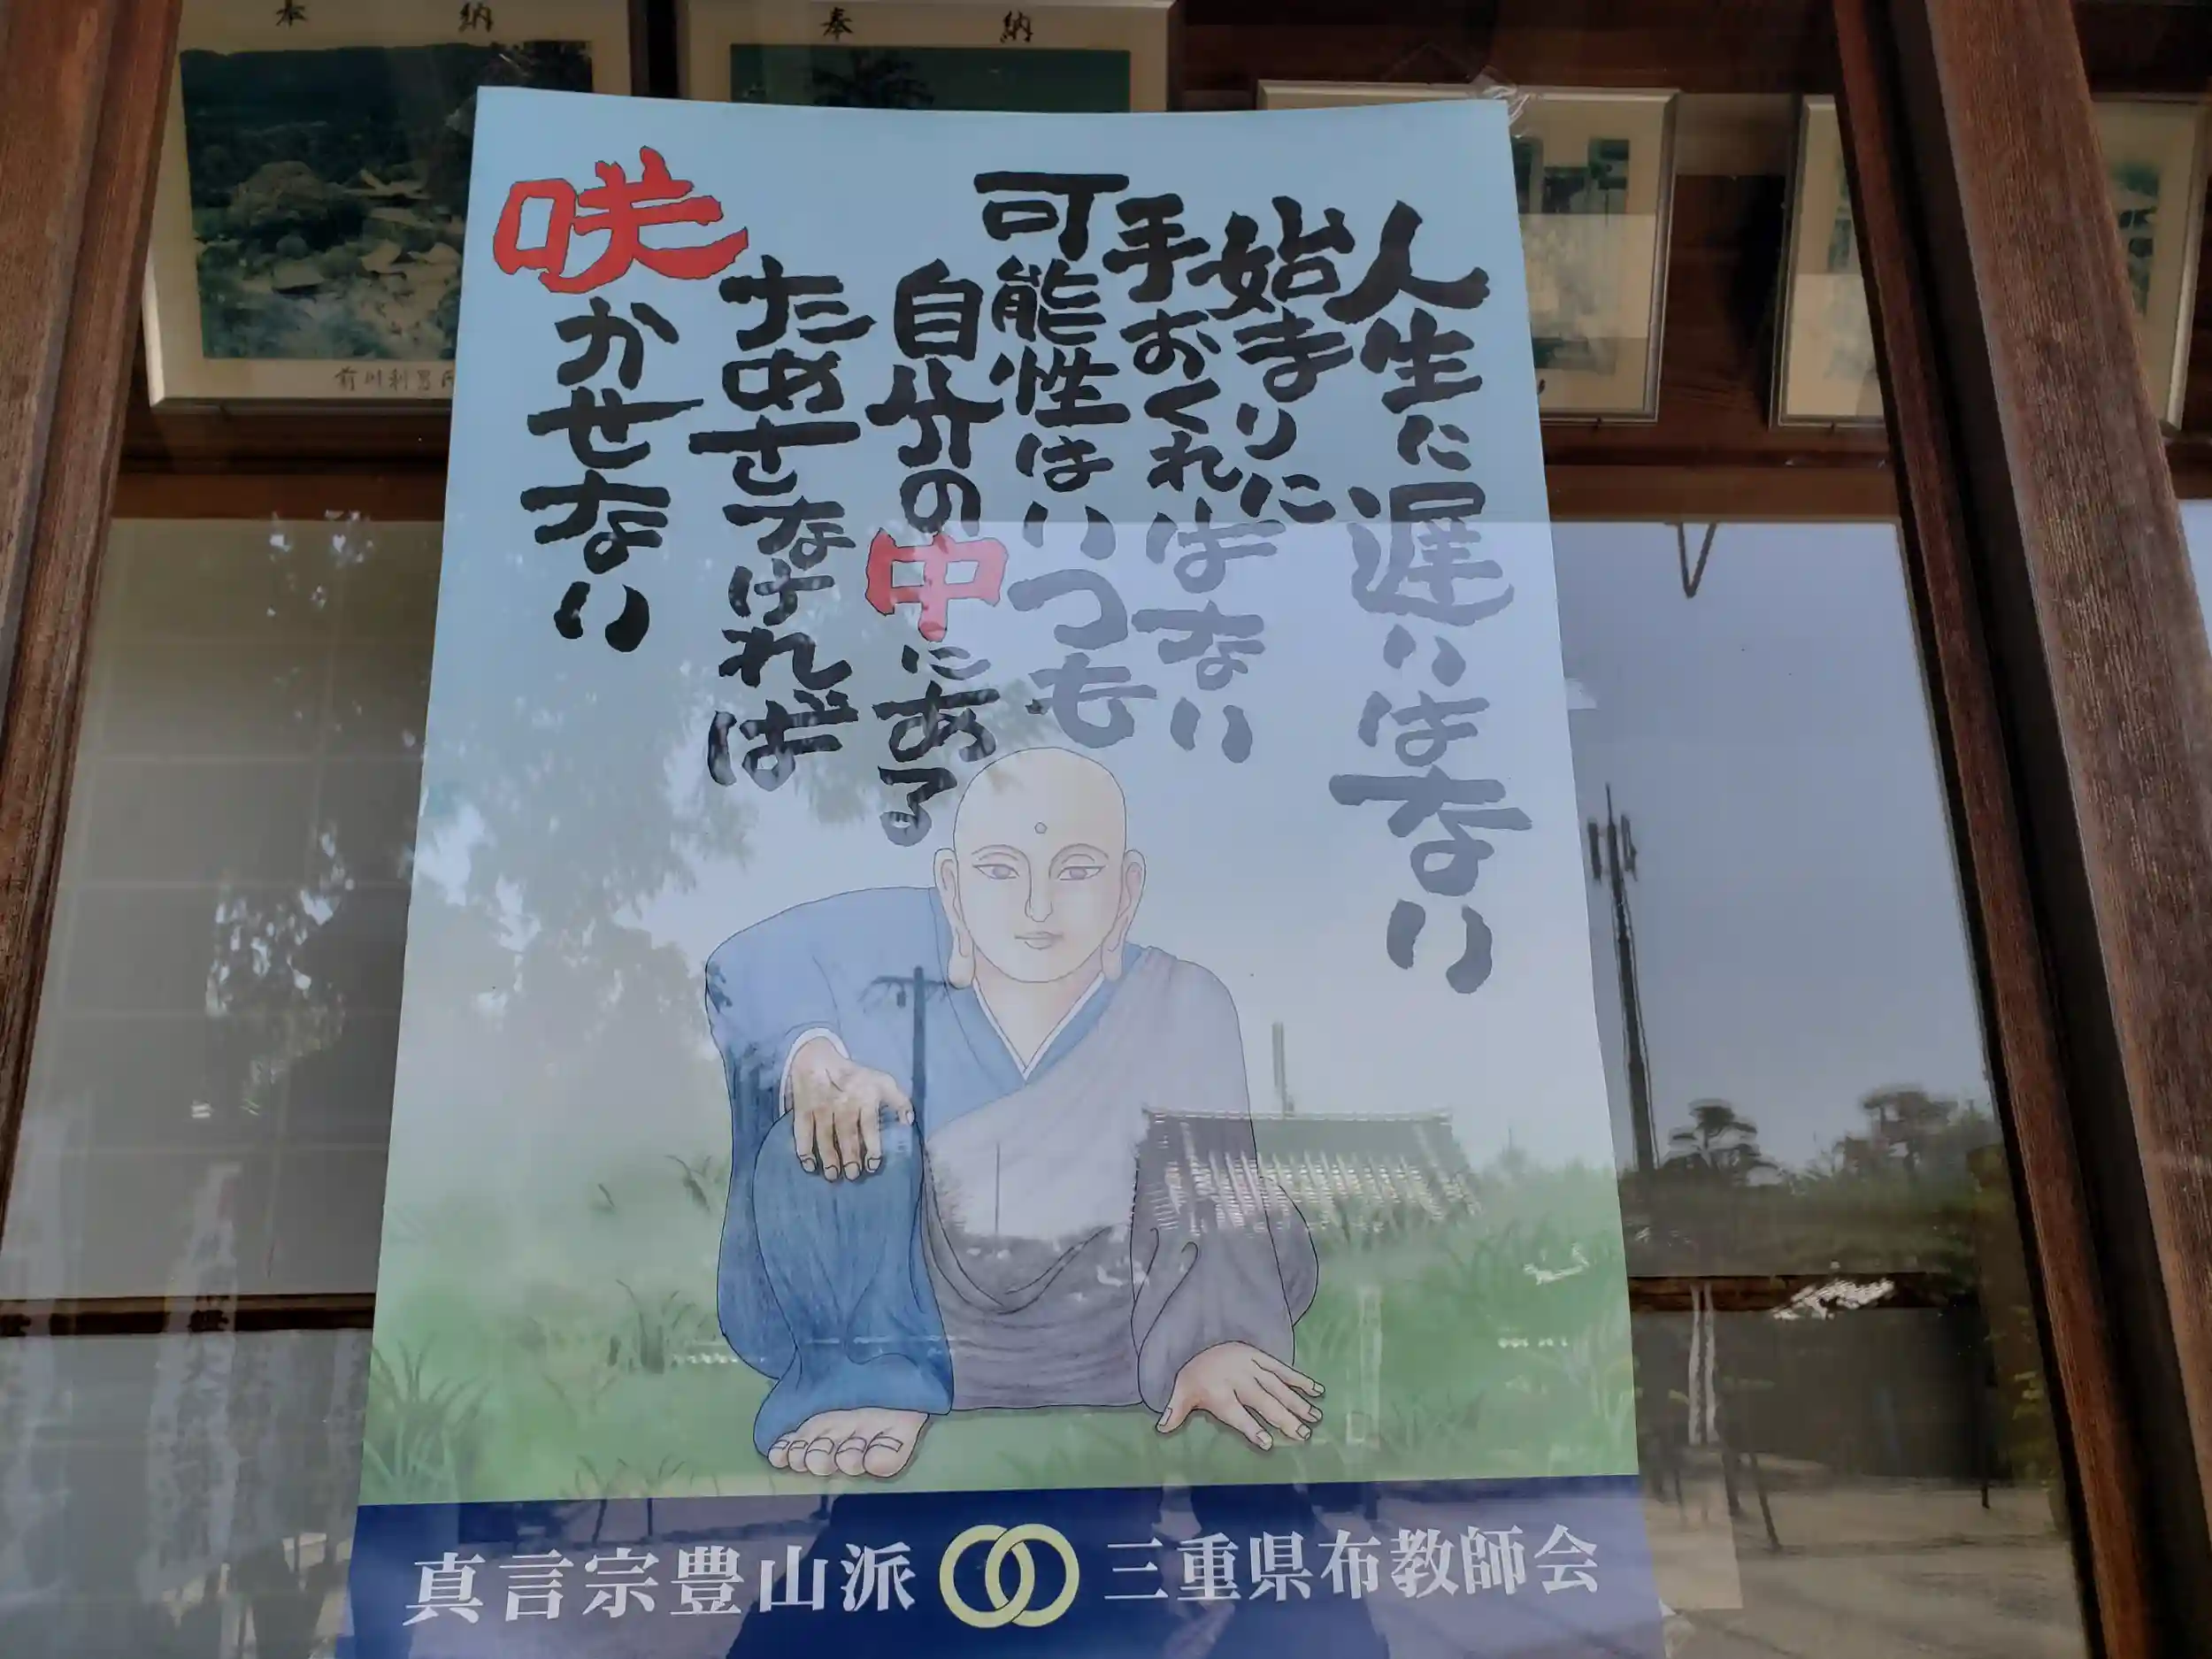 奉納
奉納
前川利男
人生に遅いはない
始まりに
手おくれはない
可能性はいつも
自分の中にある
たあさなければ
咲かせない
真言宗豊山派 三重県布教師会